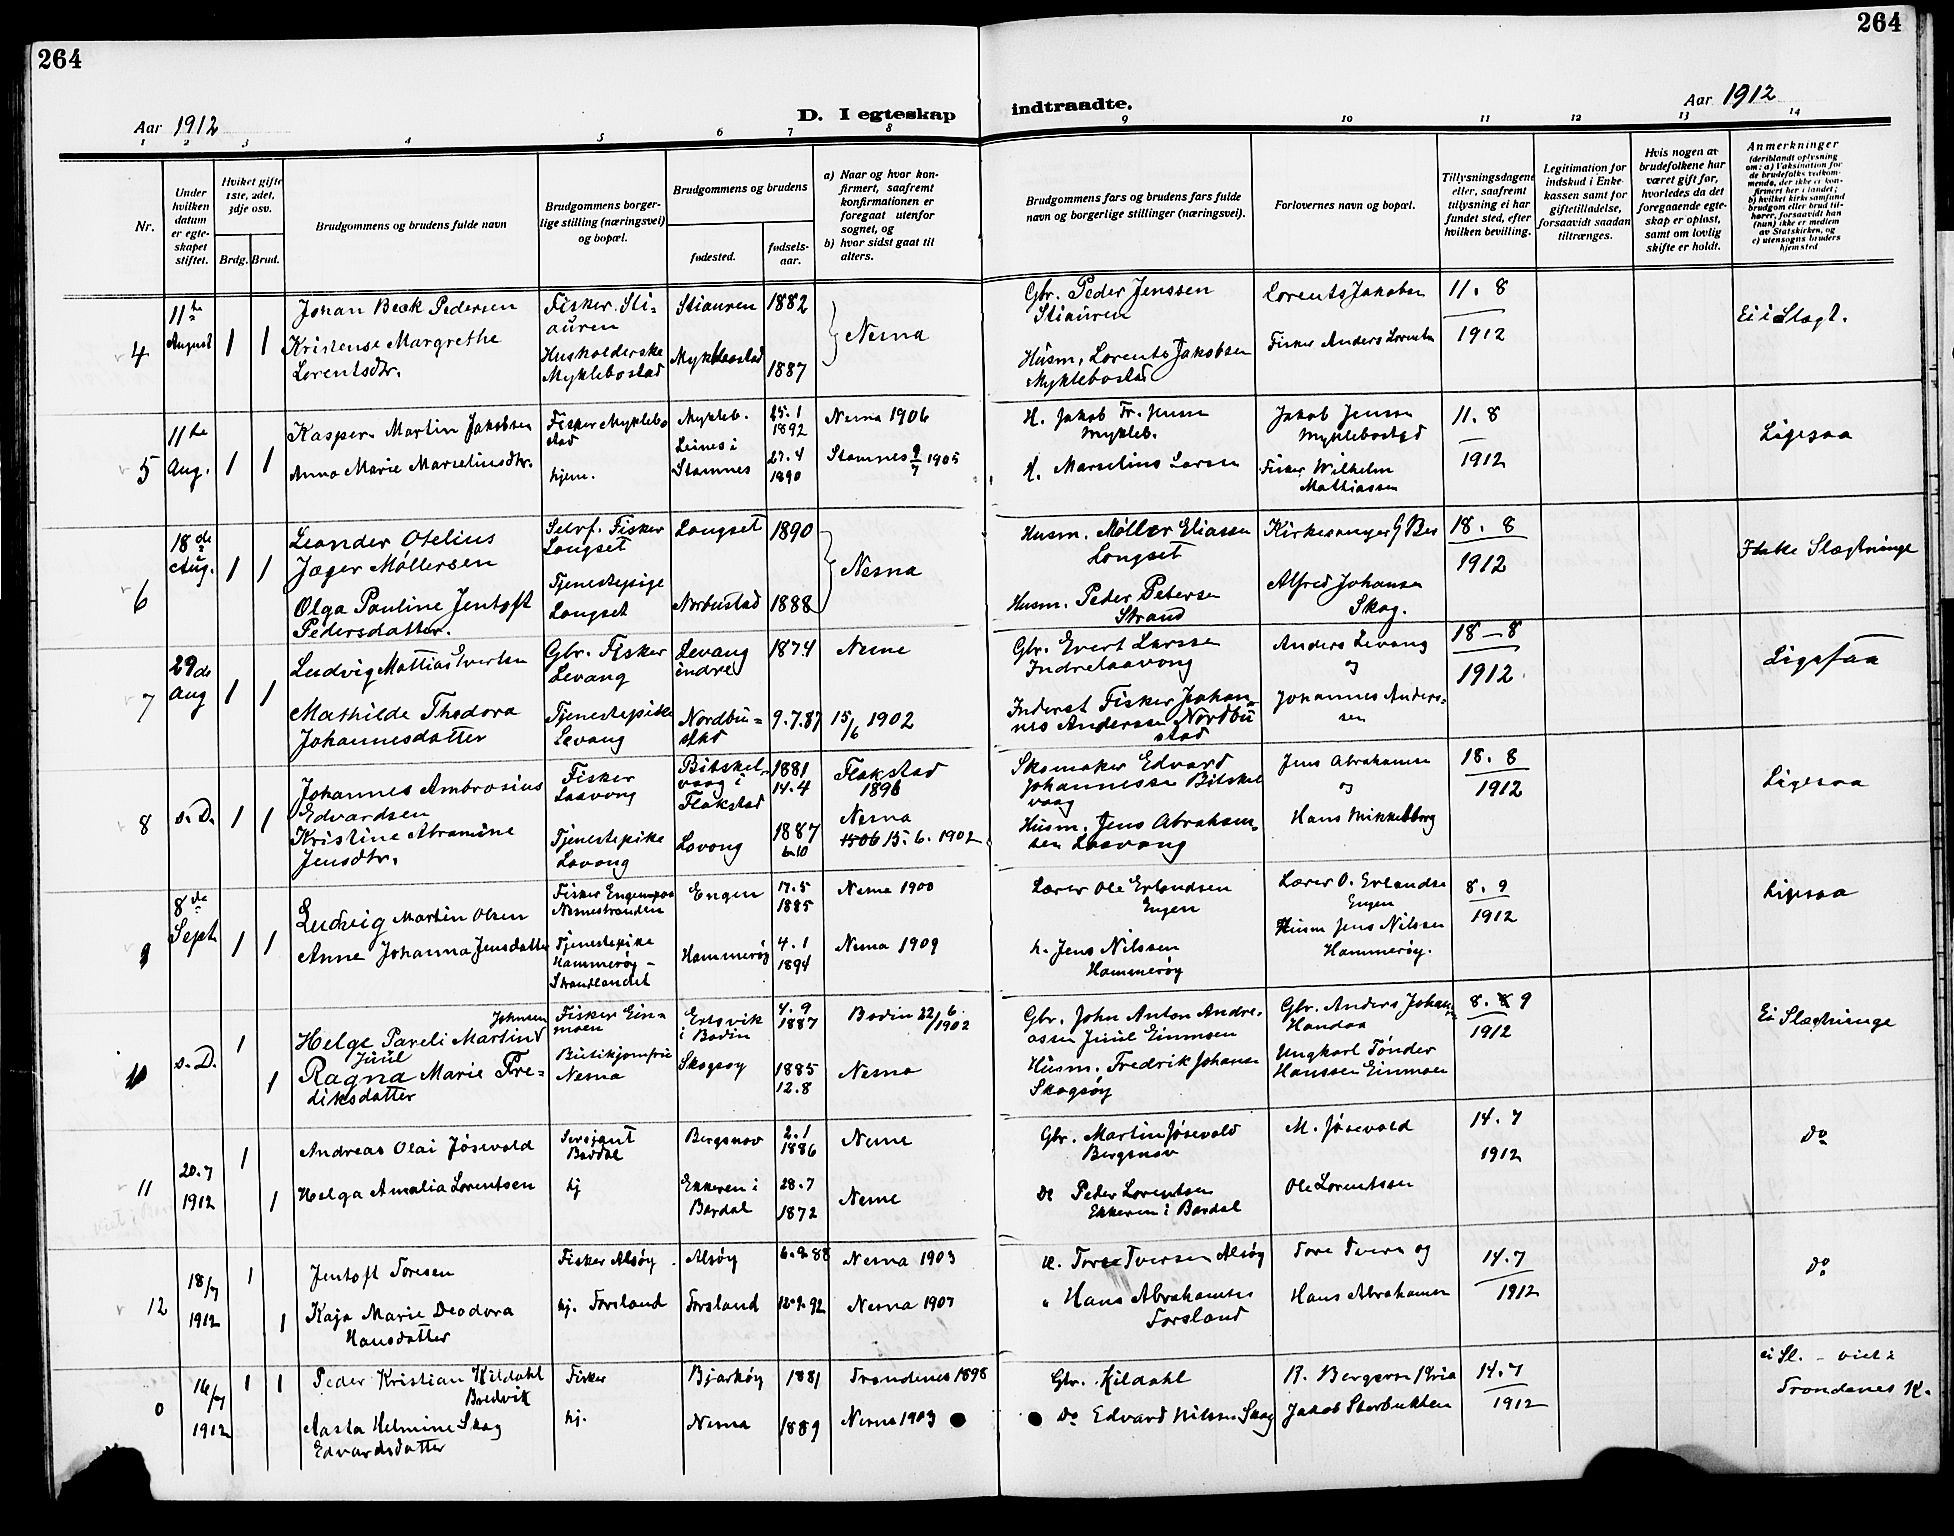 264
264
Aar 1912
D. I egteskap
indtraadte.
Aar 1912
1 2 3 4 5 6 7 8 9 10 11 12 13 14
Nr.
Under hvilken datum er egteskapet stiftet.
Hviket gifte 1ste, 2det, 3dje osv.
Brdg. Brud.
Brudgommens og brudens fulde navn
Brudgommens borgerlige stilling (næringsvei) og bopæl.
Brudgommens og brudens
fødested.
fødselsaar.
a) Naar og hvor konfirmert, saafremt konfirmationen er foregaat utenfor sognet, og
b) hvor sidst gaat til alters.
Brudgommens fars og brudens fars fulde navn og borgerlige stillinger (næringsvei).
Forlovernes navn og bopæl.
Tillysningsdagene eller, saafremt tillysning ei har fundet sted, efter hvilken bevilling.
Legitimation for indskud i Enkekassen samt for giftetilladelse, forsaavidt saadan tiltrænges.
Hvis nogen av brudefolkene har været gift før, hvorledes da det foregaaende egteskap er opløst, samt om lovlig skifte er holdt.
Anmerkninger
(deriblandt oplysning om: a) Vaksination for de brudefolks vedkommende, der ikke er konfirmert her i landet; b) hvilket kirkesamfund brudgom eller brud tilhører, forsaavidt han (hun) ikke er medlem av Statskirken, og c) utensogns bruders hjemsted
4
11te August
1 1
Johan Beck Pedersen
Kristense Margrethe
Lorentsdtr.
Fisker Stiauren
Husholderske
Myklebostad
Stiauren
Myklebostad
1882
1887
Nesna
Gbr. Peder Jenssen
Stiauren
Husm. Lorents Jakobsen
Myklebostad
Lorents Jakobsen
Fisker Anders Lorentsen
11. 8
1912
Ei i Slægt.
5
11te
Aug.
1 1
Kasper Martin Jakobsen
Anna Marie Marselinsdtr.
Fisker Myklebostad
hjem.
Mykleb.
Leines i
Stamnes
25.1
1892
27.4
1890
Nesna 1906
Stamnes 9/7 1905
H. Jakob Fr. Jenssen
Mykleb.
H. Marselius Larsen
Jakob Jenssen
Myklebostad
Fisker Wilhelm
Mathiassen
11. 8
1912
Ligesaa
6
18de
Aug.
1 1
Leander Otelius
Jæger Møllersen
Olga Pauline Jentoft
Pedersdatter.
Selvf. Fisker
Longset
Tjenestepige
Longset
Longset
Norbustad
1890
1888
Nesna
Husm. Møller Eliassen
Longset
Husm. Peder Petersen
Strand
Kirkesanger G Bes
Alfred Johansen
Skog.
18. 8
1912
Ikke Slægtninge
7
29de
Aug
1 1
Ludvig Mattias Evertsen
Mathilde Thodora
Johannesdatter
Gbr. Fisker
Levang
Tjenestepike
Levang
Levang
indre
Nordbustad
1874
9.7.87
Nesne
15/6 1902
Gbr. Evert Larssen
Indrelaavong
Inderst Fisker Johannes Anderssen Nordbustad
Anders Levang
og
Johannes Anderssen
18 - 8
1912.
Ligesaa
8
s. D.
1 1
Johannes Ambrosius
Edvardsen
Kristine Abramine
Jensdtr.
Fisker
Laavong
Tjenestepike
Lovong
Bitskelvaag i
Flakstad
Lovong
1881
14.4
1887
6-10
Flakstad
1896
Nesna
1506 15.6.1902
Skomaker Edvard
Johannessen Bitskelvaag
Husm. Jens Abrahamsen Laavong
Jens Abrahamsen
og
Hans Mikkelborg
18. 8
1912
Ligesaa
9
8de
Sept.
1 1
Ludvig Martin Olsen
Anne Johanna Jensdatter
Fisker
Nesnestranden
Tjenestepike
Hammerøy -
Strandlandet
Engen
Hammerøy
17.5
1885
4.1
1894
Nesna 1900
Nesna 1909
Lærer Ole Erlandsen
Engen
h. Jens Nilssen
Hammerøy
Lærer O. Erlandsen
Engen
Husm Jens Nilssen
Hammerøy.
8. 9
1912
Ligesaa
10
s. D.
1
1
Johnsen
Helge Pareli Martin
Juul
Ragna Marie Frediksdatter
Fisker Einmoen
Butikjomfru
Nesna
Ertsvik
i Bodin
Skogsøy
4.9
1887
1885
12.8
Bodin 22/6 1902
Nesna
Gbr. John Anton Andreassen Juul Einmoen
Husm. Fredrik Johansen
Skogsøy
Gbr. Anders Johansen
Handaa
Ungkarl Tønder
Hanssen Einmoen
8. 9
1912
Ei Slægtninge
11
20.7
1912
1
1
Andreas Olai Jøsevold
Helga Amalia Lorentsen
Sersjant
Bardal
hj
Bergsnov
Ekkeren i
Bardal
2.1
1886
28.7
1872
Nesne
Nesne
Gbr. Martin Jøsevold
Bergsnov
Do Peder Lorentsen
Ekkeren i Bardal
M. Jøsevold
Ole Lorentssen
14. 7
1912
Do
12
18/7
1912
1
1
Jentoft Toresen
Kaja Marie Deodora
Hansdatter
Fisker Alsøy
hj. Forsland
Alsøy
Forsland
6.9.88
12.9.92
Nesna 1903
Nesna 1907
H. Tore Iversen Alsøy
" Hans Abrahamsen
Forsland
Tore Iversen og
Hans Abrahamsen
14.7
1912
Do
0
16/7
1912
1 1
Peder Kristian Kildahl
Bredvik
Aasta Helmine Skog
Edvardsdatter
Fisker
hj.
Bjarkøy
Nesna
1881
1889
Trondenes 1898
Nesna 1903
Gbr. Kildahl
Do Edvard Nilssen Skog
Jakob Storbukten
14.7
1912
ei Sl. - viet i
Trondenes K.